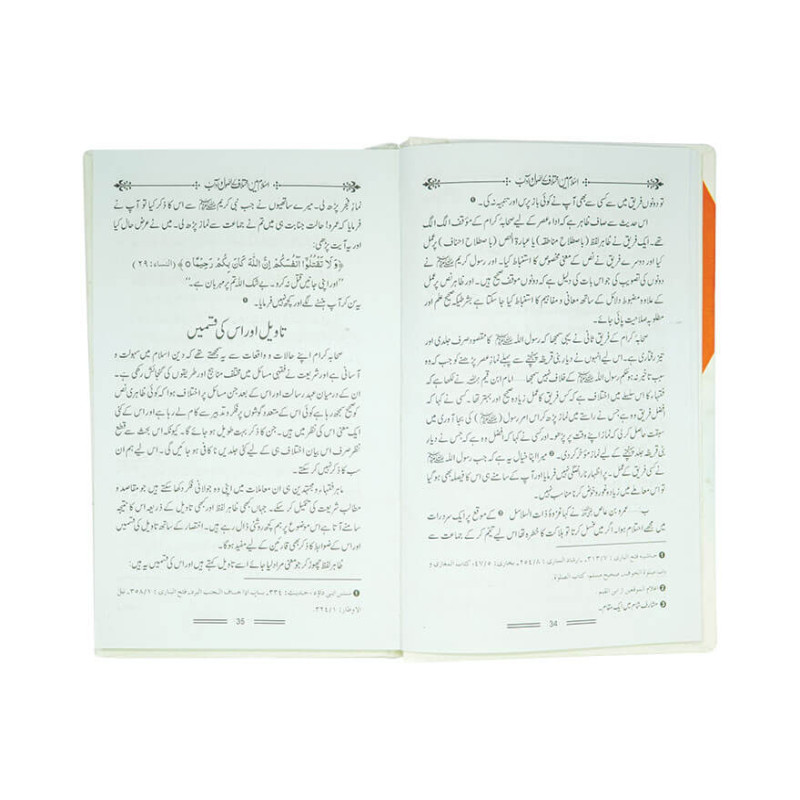 اسلام میں اختلاف کے اصول و آداب
تو دونوں فریق میں سے کسی سے بھی آپ نے کوئی باز پرس اور تنبیہ نہ کی۔ ❶
اس حدیث سے صاف ظاہر ہے کہ اداء عصر کے لیے صحابہ کرام کے مؤقف الگ الگ
تھے۔ ایک فریق نے ظاہر لفظ (با صطلاح مناطقہ) یا عبارۃ النص (با صطلاح احناف) پر عمل
کیا اور دوسرے فریق نے نص کے معنی مخصوص کا استنباط کیا۔ اور رسول کریم ﷺ نے
دونوں کی تصویب کی جو اس بات کی دلیل ہے کہ دونوں موقف صحیح ہیں۔ اور ظاہر نص پر عمل
کے علاوہ مضبوط دلائل کے ساتھ معانی و مفاہیم کا استنباط کیا جا سکتا ہے بشرطیکہ صحیح علم اور
مطلوبہ صلاحیت پائی جائے۔
صحابہ کرام کے فریق ثانی نے یہی سمجھا کہ رسول اللہ ﷺ کا مقصود صرف جلدی اور
تیز رفتاری ہے۔ اس لیے انہوں نے دیار بنی قریظہ پہنچنے سے پہلے نماز عصر پڑھنے کو جب کہ وہ
سبب تاخیر نہ ہو حکم رسول اللہ ﷺ کے خلاف نہیں سمجھا۔ امام ابن قیم نے لکھا ہے کہ
فقہاء کا اس سلسلے میں اختلاف ہے کہ کس فریق کا عمل زیادہ صحیح اور بہتر تھا۔ کسی نے کہا کہ
افضل فریق وہ ہے جس نے راستے میں نماز پڑھ کر اس امر رسول (ﷺ) کی بجا آوری میں
سبقت حاصل کر لی کہ نماز اپنے وقت پر پڑھو۔ اور کسی نے کہا کہ افضل وہ ہے کہ جس نے دیار
بنی قریظہ جلد پہنچنے کے لیے نماز مؤخر کر دی۔ ❷ میرا اپنا خیال یہ ہے کہ جب رسول اللہ ﷺ
نے کسی فریق کے عمل پر اظہار ناراضگی نہیں فرمایا اور آپ کے سامنے ہی اس کا فیصلہ بھی ہو گیا
تو اس معاملے میں زیادہ غور و خوض کرنا مناسب نہیں۔
ب۔ عمرو بن عاص کہتے ہیں کہ غزوۂ ذات السلاسل ❸ کے موقع پر ایک سرد رات
میں مجھے احتلام ہوا۔ اگر میں غسل کرتا تو ہلاکت کا خطرہ تھا اس لیے تیمم کر کے جماعت سے
❷ اعلام الموقعین
❸ مشارف شام میں ایک مقام۔
34
اسلام میں اختلاف کے اصول و آداب
نماز فجر پڑھ لی۔ میرے ساتھیوں نے جب نبی کریم ﷺ سے اس کا ذکر کیا تو آپ نے
فرمایا کہ عمرو! حالت جنابت ہی میں تم نے جماعت سے نماز پڑھ لی۔ میں نے عرض حال کیا
اور یہ آیت پڑھی:
﴿وَ لَا تَقْتُلُوْٓا اَنْفُسَكُمْ اِنَّ اللّٰهَ كَانَ بِكُمْ رَحِيْمًا﴾ (النساء: ۲۹)
"اور اپنی جانیں قتل نہ کرو۔ بے شک اللہ تم پر مہربان ہے۔"
یہ سن کر آپ ہنسنے لگے اور کچھ نہیں فرمایا۔ ❶
تاویل اور اس کی قسمیں
صحابہ کرام اپنے حالات و واقعات سے یہ سمجھتے تھے کہ دین اسلام میں سہولت و
آسانی ہے اور شریعت نے فقہی مسائل میں مختلف مناہج اور طریقوں کی گنجائش رکھی ہے۔
ان کے درمیان عہد رسالت اور اس کے بعد جن مسائل پر اختلاف ہوا کہ کوئی ظاہری نص
کو صحیح سمجھ رہا ہے کوئی اس کے متعدد گوشوں پر فکر و تدبیر سے کام لے رہا ہے۔ اور اس کے کئی
ایک معنی اس کی نظر میں ہیں۔ جن کا ذکر بہت طویل ہو جائے گا۔ کیونکہ اس بحث سے قطع
نظر صرف اس بیان اختلاف ہی کے لیے کئی جلدیں نا کافی ہو جائیں گی۔ اس لیے ہم ان
سب کا ذکر نہیں کر سکتے۔
ماہر فقہاء و مجتہدین ہی ان معاملات میں اپنی وہ جولانی فکر دکھا سکتے ہیں جو مقاصد و
مطالب شریعت کی تکمیل کر سکے۔ جہاں کبھی ظاہر لفظ اور کبھی تاویل کے ذریعے اس کا نتیجہ
سامنے آتا ہے اس موضوع پر ہم کچھ روشنی ڈال رہے ہیں۔ اختصار کے ساتھ تاویل کی قسمیں
اور اس کے ضوابط کا ذکر بھی قارئین کے لیے مفید ہو گا۔
ظاہر لفظ چھوڑ کر جو معنی مراد لیا جائے اسے تاویل کہتے ہیں اور اس کی قسمیں یہ ہیں:
❶ سنن ابی داؤد، حدیث: ۳۳۴، باب اذا خاف الجنب البرد۔ فتح الباری: ۱/ ۳۵۸۔ نیل
الاوطار: ۱/ ۳۲۴
35